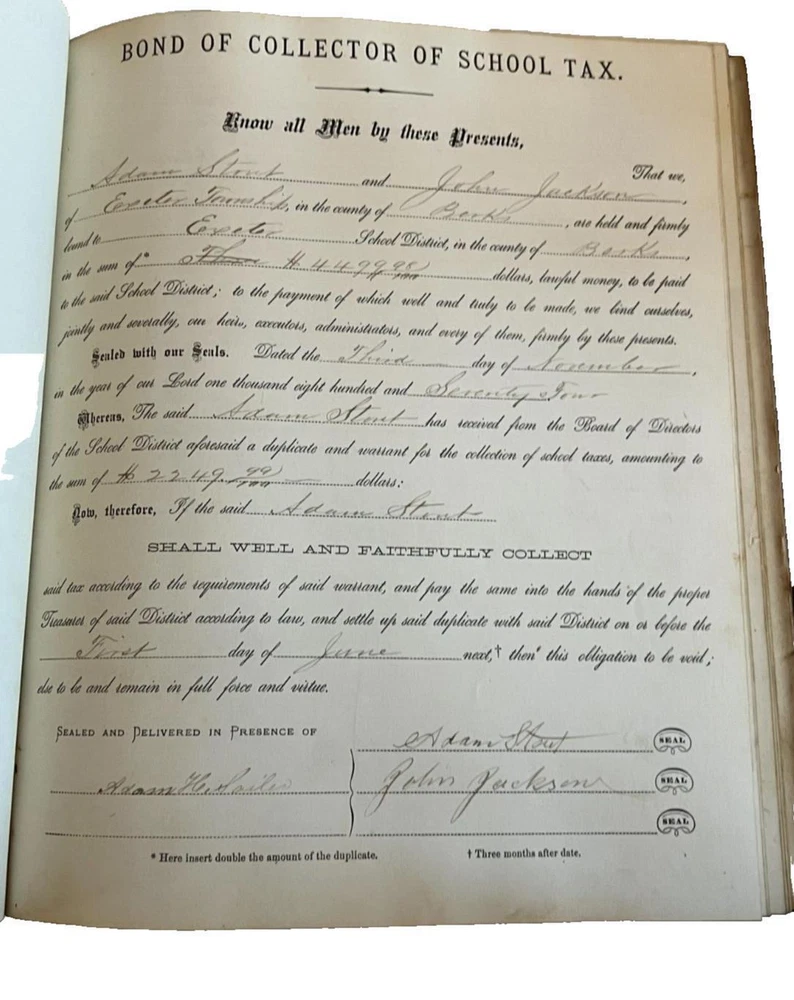 BOND OF COLLECTOR OF SCHOOL TAX.
Know all Men by these Presents,
That we,
Adam Stout and John Jackson,
of Exeter Township, in the county of Berks, are held and firmly
bound to Exeter School District, in the county of Berks,
in the sum of* $4499 98/100 dollars, lawful money, to be paid
to the said School District; to the payment of which well and truly to be made, we bind ourselves,
jointly and severally, our heirs, executors, administrators, and every of them, firmly by these presents.
Sealed with our Seals. Dated the Third day of November,
in the year of our Lord one thousand eight hundred and Seventy Four
Whereas, The said Adam Stout has received from the Board of Directors
of the School District aforesaid a duplicate and warrant for the collection of school taxes, amounting to
the sum of $2249. 99/100 dollars:
Now, therefore, If the said Adam Stout
SHALL WELL AND FAITHFULLY COLLECT
said tax according to the requirements of said warrant, and pay the same into the hands of the proper
Treasurer of said District according to law, and settle up said duplicate with said District on or before the
First day of June next,† then this obligation to be void;
else to be and remain in full force and virtue.
SEALED AND DELIVERED IN PRESENCE OF
Adam Stout SEAL
Adam H. John Jackson SEAL
SEAL
* Here insert double the amount of the duplicate. † Three months after date.